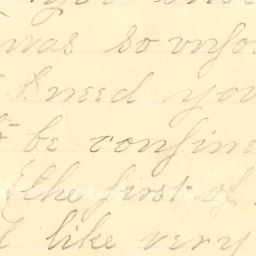 was so unfo
I need you
to be confine
the first of
like very